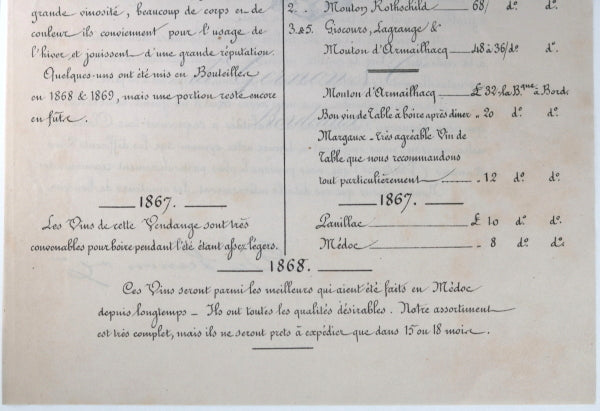 grande vinosité, beaucoup de corps en de
couleur ils conviennent pour l'usage de
l'hiver et jouissent d'une grande réputation.
Quelques-uns ont été mis en Bouteilles
en 1868 & 1869, mais une portion reste encore
en fûts.
1867.
Les Vins de cette Vendange sont très
convenables pour boire pendant l'été étant assez légers.
2. Mouton Rothschild 68/ do. do.
3.&5. Giscours, Lagrange &
Mouton d'Armailhacq 48 à 36/ do. do.
Mouton d'Armailhacq £ 32 la Bque à Bord.
Bon vin de Table à boire après diner „ 20 do. do.
Margaux - très agréable Vin de
Table que nous recommandons
tout particulièrement „ 12 do. do.
1867.
Pauillac £ 10 do. do.
Médoc „ 8 do. do.
1868.
Ces Vins seront parmi les meilleurs qui aient été faits en Médoc
depuis longtemps _ Ils ont toutes les qualités désirables. Notre assortiment
est très complet, mais ils ne seront prets à expédier que dans 15 ou 18 mois.